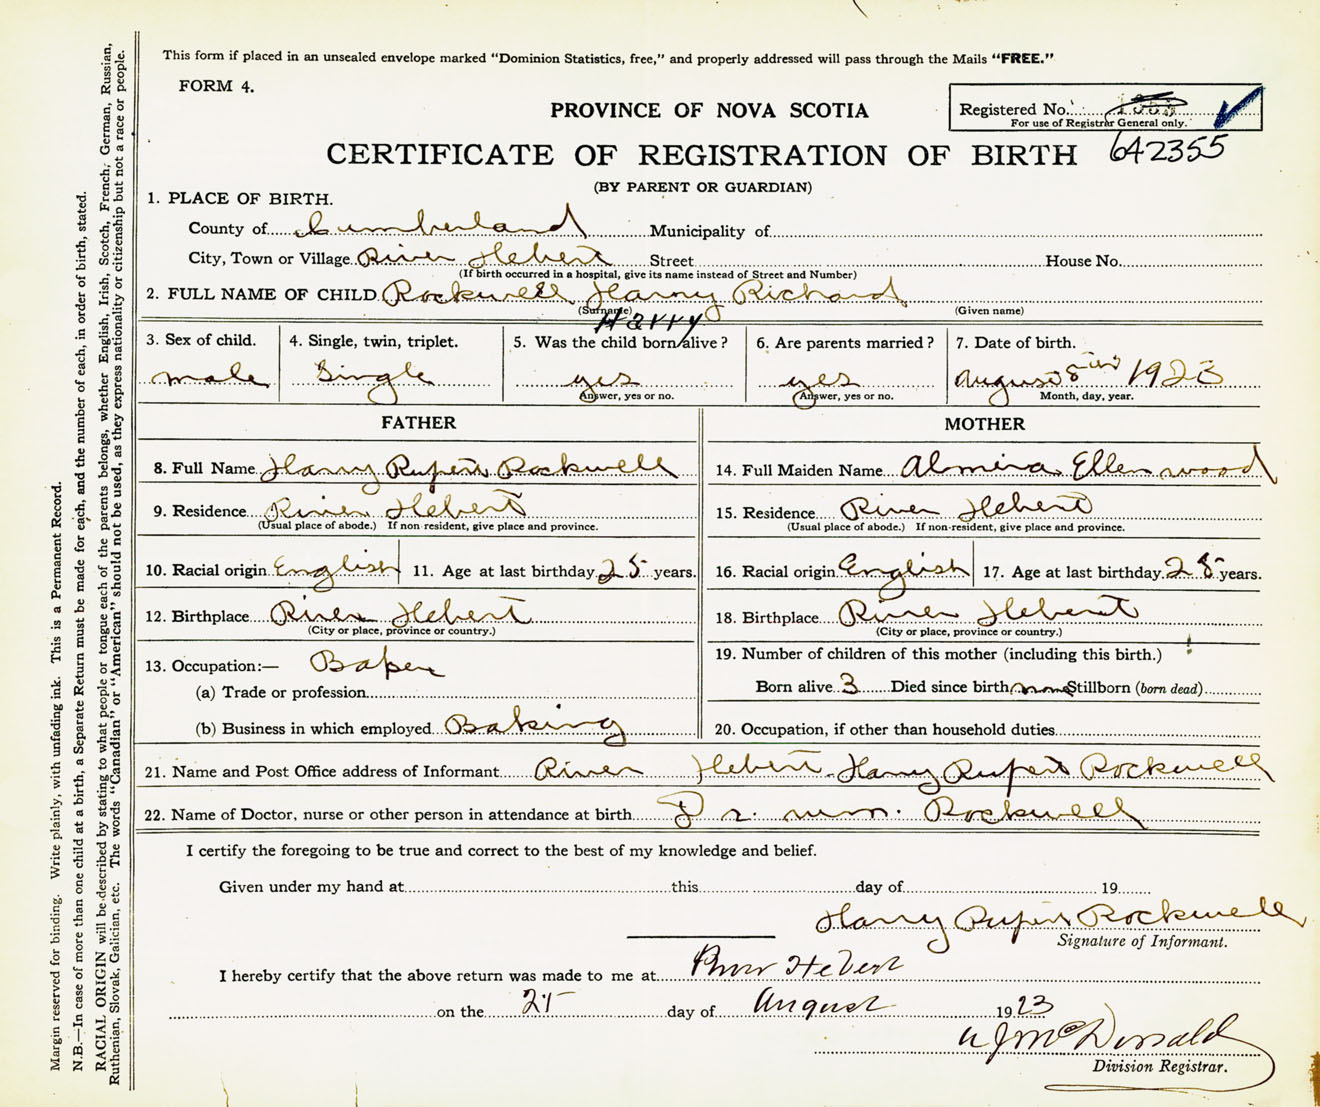 This form if placed in an unsealed envelope marked "Dominion Statistics, free," and properly addressed will pass through the Mails "FREE."
FORM 4.
PROVINCE OF NOVA SCOTIA
Registered No.
For use of Registrar General only.
642355
CERTIFICATE OF REGISTRATION OF BIRTH
(BY PARENT OR GUARDIAN)
1. PLACE OF BIRTH.
County of Cumberland Municipality of
City, Town or Village River Hebert Street House No.
(If birth occurred in a hospital, give its name instead of Street and Number)
2. FULL NAME OF CHILD Rockwell Harry Richard
(Surname) (Given name)
Harry
3. Sex of child. 4. Single, twin, triplet. 5. Was the child born alive? 6. Are parents married? 7. Date of birth.
male Single yes yes August 8 1923
Answer, yes or no. Answer, yes or no. Month, day, year.
FATHER MOTHER
8. Full Name Harry Rupert Rockwell 14. Full Maiden Name Almira Ellen wood
9. Residence River Hebert 15. Residence River Hebert
(Usual place of abode.) If non-resident, give place and province. (Usual place of abode.) If non-resident, give place and province.
10. Racial origin English 11. Age at last birthday 25 years. 16. Racial origin English 17. Age at last birthday 28 years.
12. Birthplace River Hebert 18. Birthplace River Hebert
(City or place, province or country.) (City or place, province or country.)
13. Occupation:— Baker 19. Number of children of this mother (including this birth.)
(a) Trade or profession Born alive 3 Died since birth none Stillborn (born dead)
(b) Business in which employed Baking 20. Occupation, if other than household duties
21. Name and Post Office address of Informant River Hebert. Harry Rupert Rockwell
22. Name of Doctor, nurse or other person in attendance at birth Dr. wm. Rockwell
I certify the foregoing to be true and correct to the best of my knowledge and belief.
Given under my hand at this day of 19
Harry Rupert Rockwell
Signature of Informant.
I hereby certify that the above return was made to me at River Hebert
on the 25 day of August 1923
McDonald
Division Registrar.
Margin reserved for binding. Write plainly, with unfading ink. This is a Permanent Record.
N.B.—In case of more than one child at a birth, a Separate Return must be made for each, and the number of each, in order of birth, stated.
RACIAL ORIGIN will be described by stating to what people or tongue each of the parents belongs, whether English, Irish, Scotch, French, German, Russian,
Ruthenian, Slovak, Galician, etc. The words "Canadian" or "American" should not be used, as they express nationality or citizenship but not a race or people.